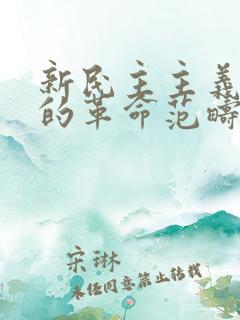 新民主主义
的革命范畴
宋琳
未经同意禁止转载